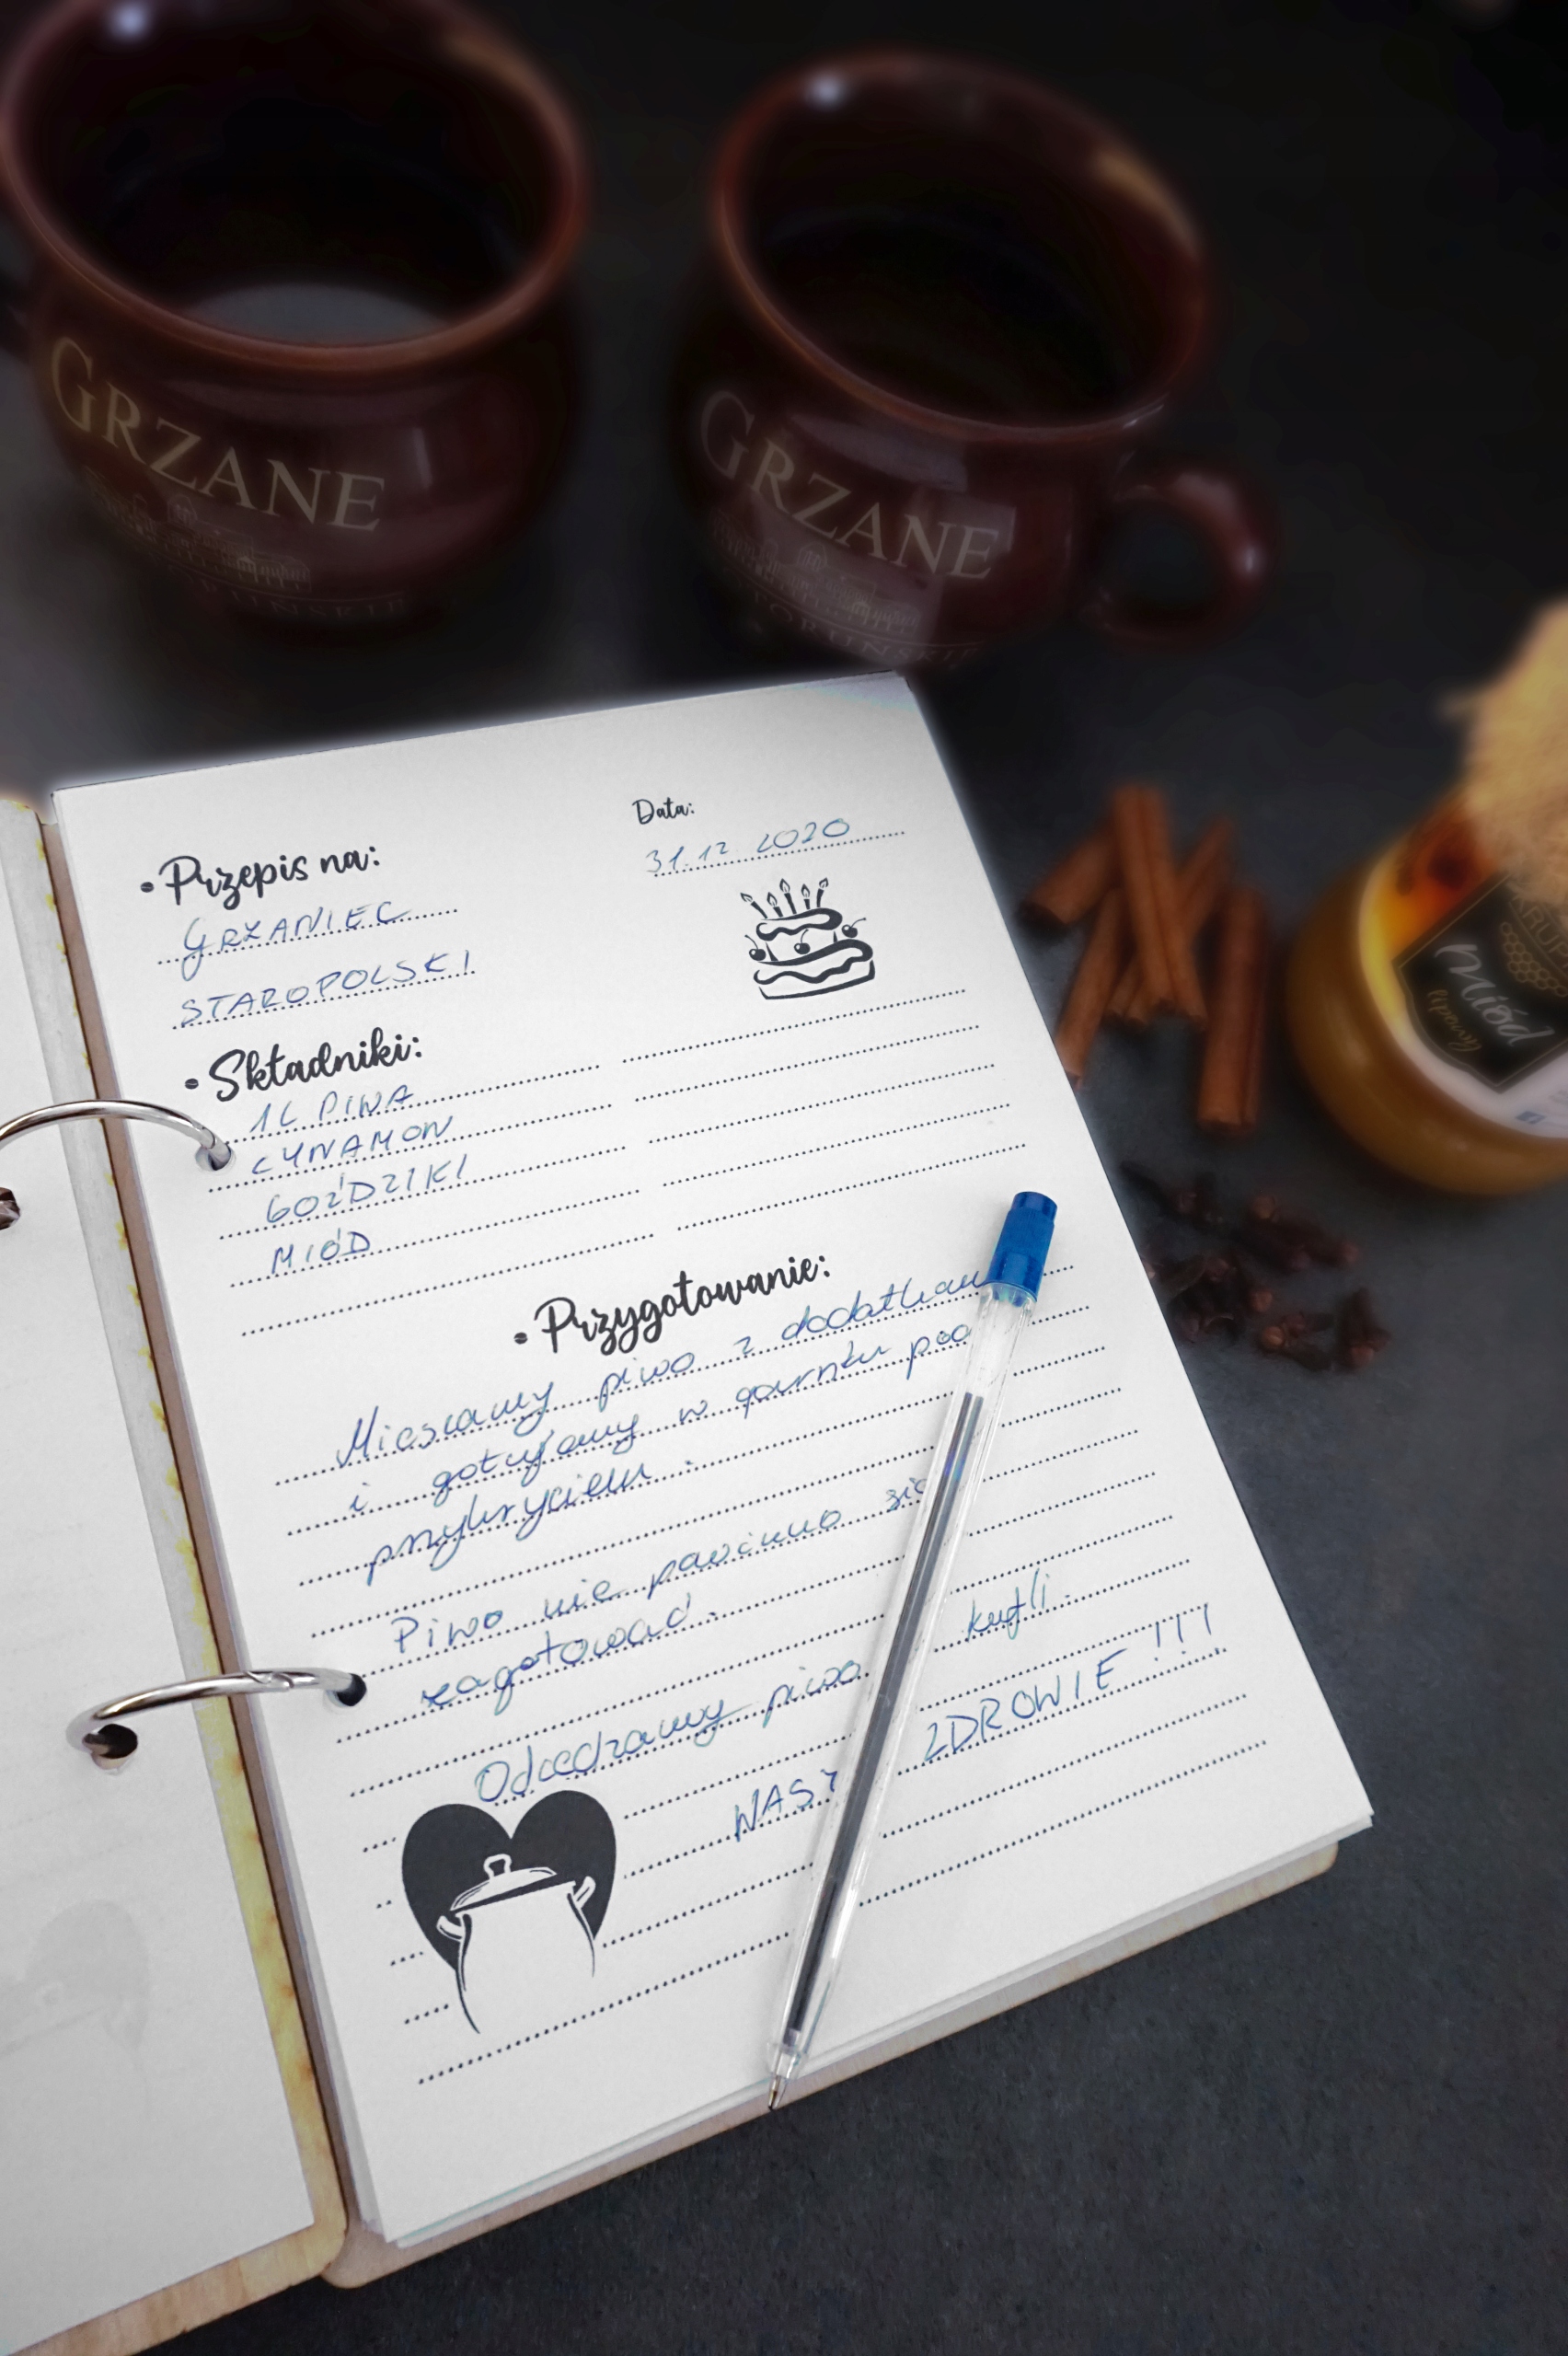 GRZANE
TORUŃSKIE
GRZANE
TORUŃSKIE
Data:
31.12 2020
• Przepis na:
GRZANIEC
STAROPOLSKI
• Składniki:
1L PIWA
CYNAMON
GOŹDZIKI
MIÓD
• Przygotowanie:
Mieszamy piwo z
i gotujemy w garnku pod
przykryciem.
Piwo nie powinno się
zagotować.
Odcedzamy piwo
kufli.
WASZ ZDROWIE !!!
Miód
lipowy